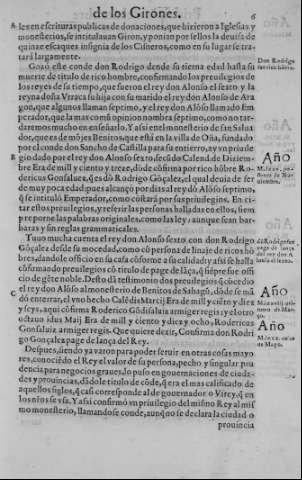 de los Girones. 6
les en escrituras publicas de donaciones, que hizieron a Iglesias y
monesterios, se intitulauan Giron, y ponian por sellos la deuisa de
quinze escaques insignia de los Cisneros, como en su lugar se tra-
tará largamente.
Gozó este conde don Rodrigo desde su tierna edad hasta su
muerte de titulo de rico hombre, confirmando los preuilegios de
los reyes de su tiempo, que fueron el rey don Alonso el sexto y la
reyna doña Vrraca su hija con su marido el rey don Alonso de Ara
gon, que algunos llaman septimo, y el rey don Alōso llamado Em
perador, que la mas comū opinion nombra septimo, como no tar-
daremos mucho en enseñarlo. Y assi en el monesterio de san Salua
dor, que es de mōjes Benitos, que está en la villa de Oña, fundado
por el conde don Sancho de Castilla para su entierro, ay vn priuile
gio dado por el rey don Alonso sexto, secūdo Calend. de Diziem-
bre Era de mill y ciento y treze, dōde cōfirma por rico hōbre Ro-
dericus Gonsaluez, q̄ es dō Rodrigo Gōçalez, el qual deuia de ser
de muy poca edad pues alcançó por dias al rey dō Alōso septimo,
q̄ se intituló Emperador, como cōstará por sus priuilegios. En ci-
tar estos preuilegios, y referir las personas halladas en ellos, siem
pre porne las palabras originales, como las ley, aunque sean bar-
baras y sin reglas grammaticales.
Tuuo mucha cuenta el rey don Alonso sexto con don Rodrigo
Gōçalez desde su mocedad, como cō persona de linaje de ricos hō
bres, dandole officio en su casa cōforme a su calidad y assi se halla
cōfirmando preuilegios cō titulo de page de lāça, q̄ siēpre fue offi
cio de gēte noble. Desto dā testimonio dos preuilegios q̄ cōcedio
el rey don Alōso al monesterio de Benitos de Sahagū, dōde se mā
dó enterrar, el vno hecho Calēdis Marcij Era de mill y ciēto y diez
y seys, aqui cōfirma Rodericō Gōdisaluiz armiger regis: y el otro
octauo idus Maij Era de mill y ciento y diez y ocho, Rodericus
Gonsaluiz armiger regis. Que quiere dezir, Confirma don Rodri
go Gonçalez page de lança del Rey.
Despues, siendo ya varon para poder seruir en otras cosas mayo
res, conocido el Rey el valor de su persona, pecho y singular pru
dencia para negocios graues, lo puso en gouernaciones de ciuda-
des y prouincias, dādole titulo de cōde, q̄ era el mas calificado de
aquellos siglos, q̄ casi corresponde al de gouernador o Virrey, q̄ en
los nr̄os se vsa. Y assi confirmó vn priuilegio del mismo Rey al mis
mo monesterio, llamandose conde, aunq̄ no se declara la ciudad o
prouincia
A
B
C
Don Rodrigo
Año
Año
Año
de Mayo.